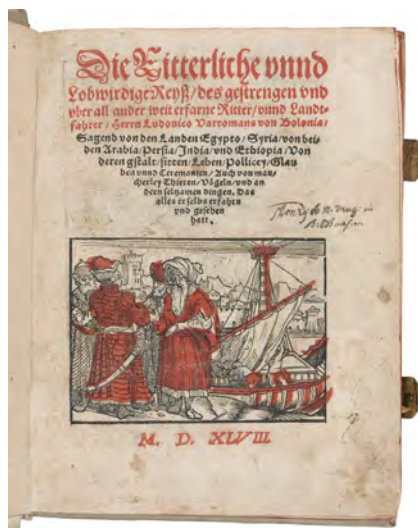 Die Ritterliche vnnd
Lobwirdige Reyß/des gestrengen vnd
vber all ander weit erfarne Ritter/vnnd Landt-
fahrer/Herrn Ludouico Vartomans von Bolonia/
Sagend von den Landen Egypto/Syria/von bei-
den Arabia/Persia/India/vnd Ethiopia/Von
deren gstalt/sitten/Leben/Pollicey/Glau
ben vnnd Ceremonien/Auch von man-
cherley Thieren/Vögeln/vnd an
dern seltzamen dingen. Das
alles er selbs erfahren
vnd gesehen
hatt.
M. D. XLVIII.